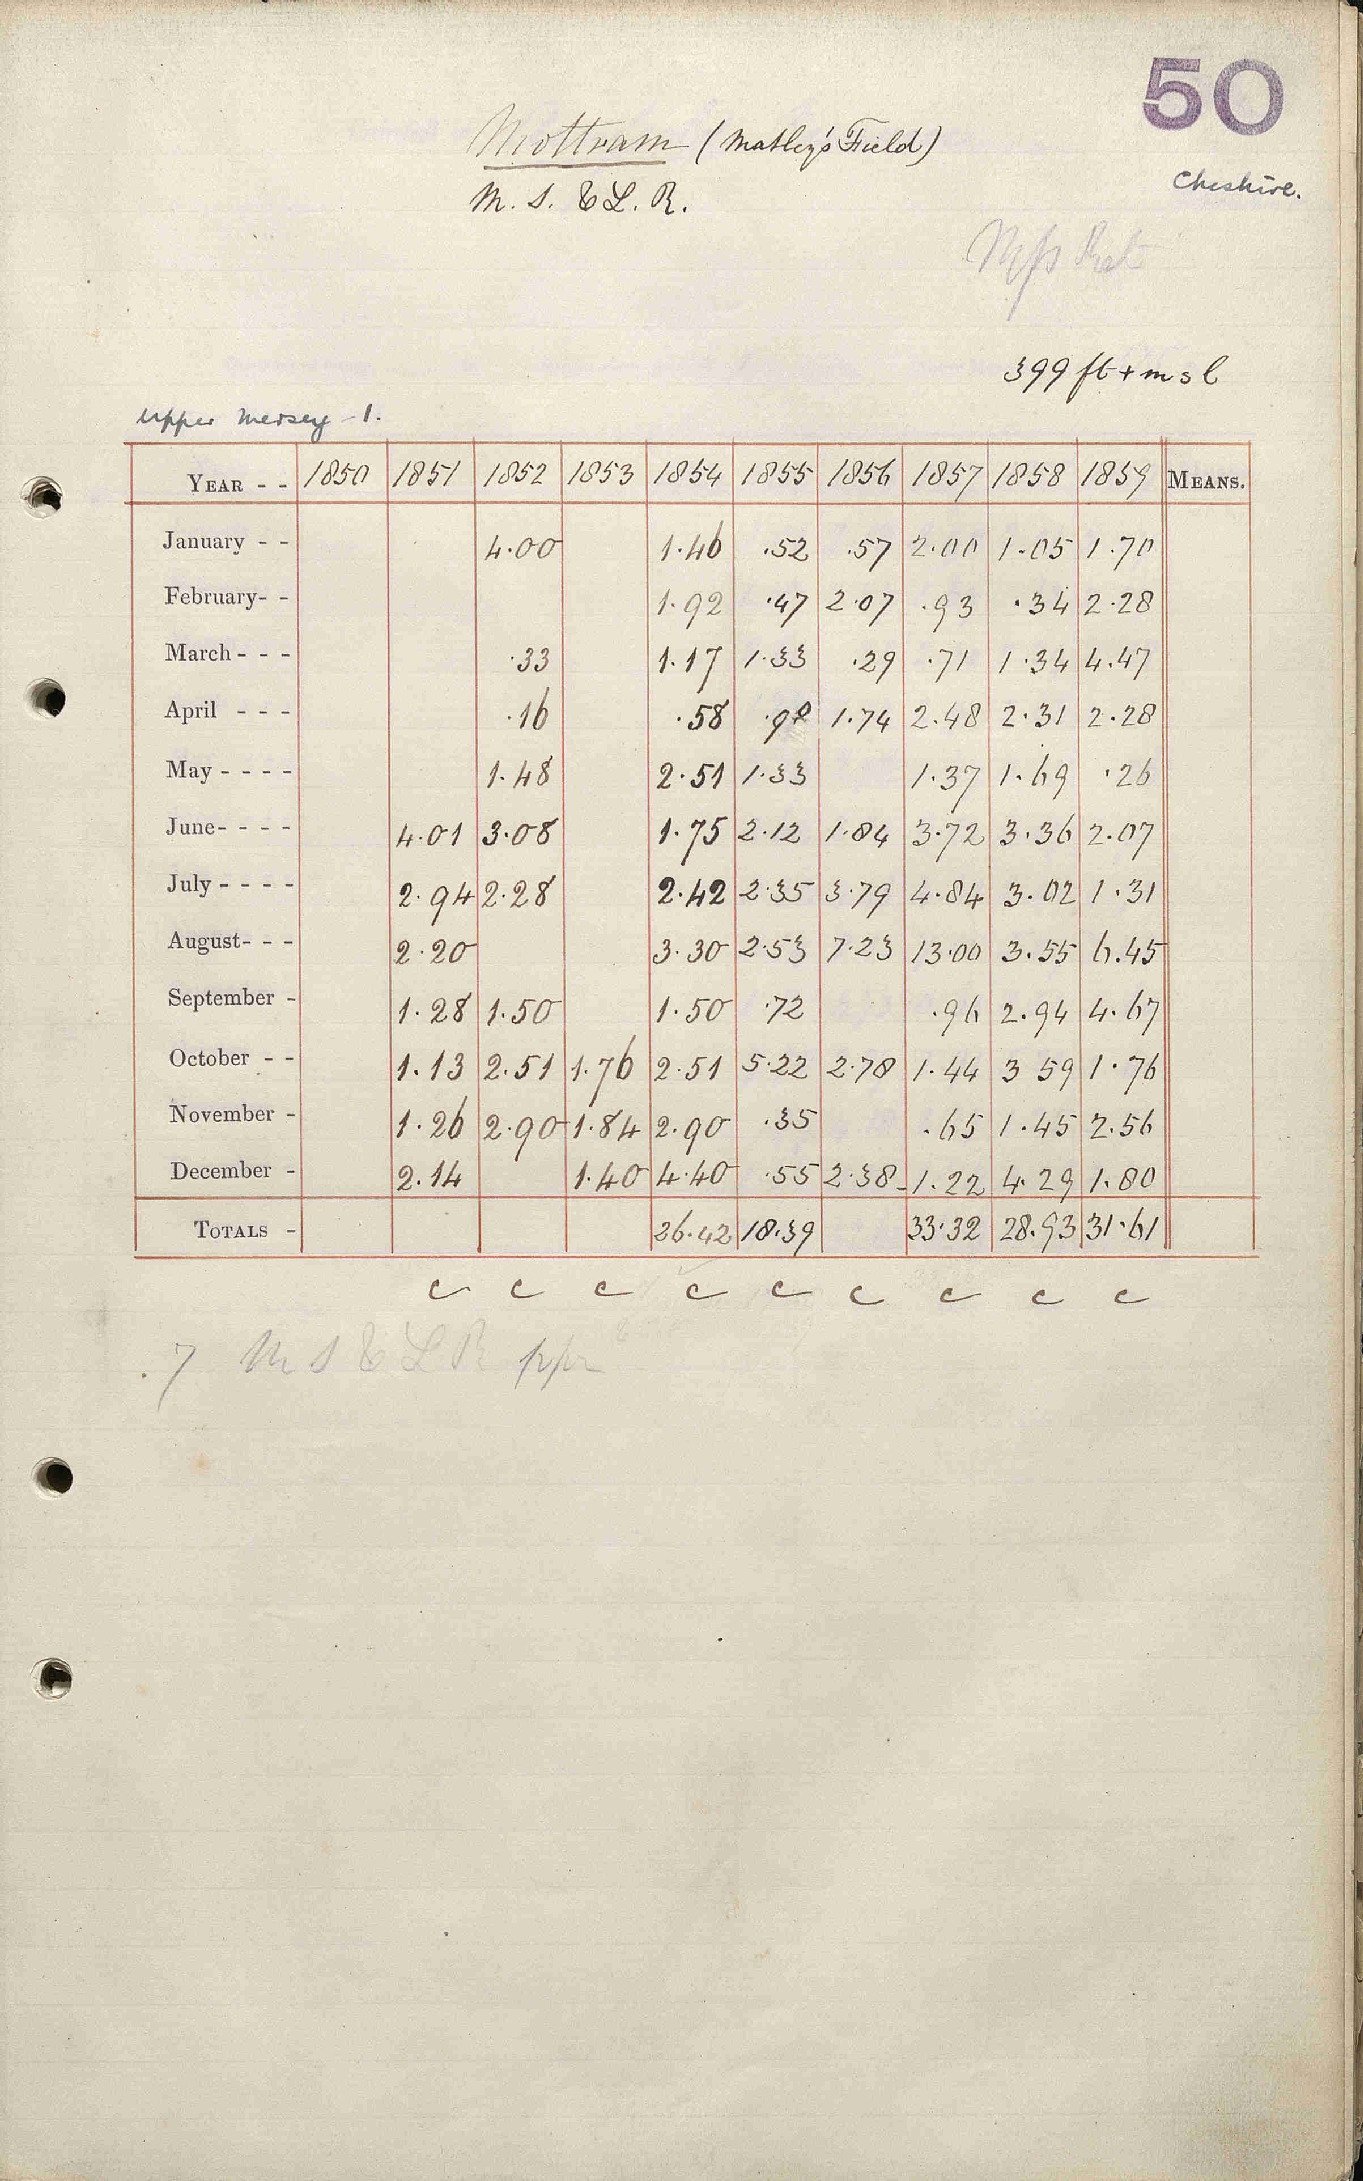 50
Mottram (Matley's Field)
Cheshire.
M. S. & L. R.
399 ft + msl
Upper Mersey - 1.
YEAR - - 1850 1851 1852 1853 1854 1855 1856 1857 1858 1859 MEANS.
January - - 4.00 1.46 .52 .57 2.00 1.05 1.70
February- - 1.92 .47 2.07 .93 .34 2.28
March - - - .33 1.17 1.33 .29 .71 1.34 4.47
April - - - .16 .58 .90 1.74 2.48 2.31 2.28
May - - - - 1.48 2.51 1.33 1.37 1.69 .26
June- - - - 4.01 3.08 1.75 2.12 1.84 3.72 3.36 2.07
July - - - - 2.94 2.28 2.42 2.35 3.79 4.84 3.02 1.31
August- - - 2.20 3.30 2.53 7.23 13.00 3.55 6.45
September - 1.28 1.50 1.50 .72 .96 2.94 4.67
October - - 1.13 2.51 1.76 2.51 5.22 2.78 1.44 3 59 1.76
November - 1.26 2.90 1.84 2.90 .35 .65 1.45 2.56
December - 2.14 1.40 4.40 .55 2.38 1.22 4.29 1.80
TOTALS - 26.42 18.39 33.32 28.93 31.61
c c c c c c c c c
.7 M S & L R ppr